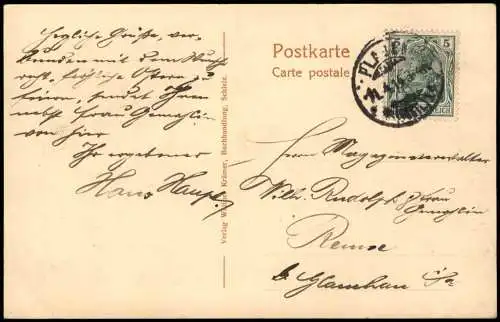 Herzliche Grüße, ver-
bunden mit dem Wunsch
recht fröhliche Ostern zu
feiern, sendet Ihnen
nebst Frau Gemahlin
von hier
Ihr ergebener
Hans Haupt
Verlag W. Krämer, Buchhandlung, Schleiz.
Postkarte
Carte postale
PLAUEN
5
REICH
Herrn Magazinverwalter
Wilh. Rudolph & Frau
Gemahlin
Remse
b. Glauchau i/Sa